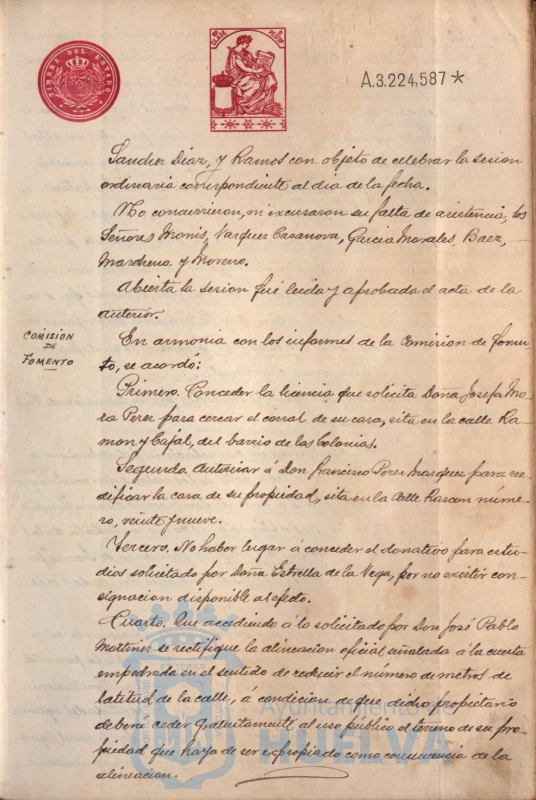 TIMBRE DEL ESTADO
CLASE
A.3.224,587 *
Sanchez Diaz, y Ramos con objeto de celebrar la sesion
ordinaria correspondiente al dia de la fecha.
No concurrieron, ni excusaron su falta de asistencia, los
Señores Monis, Vazquez Casanova, Garcia Morales, Baez,
Marchena y Moreno.
Abierta la sesion fué leida y aprobada el acta de la
anterior.
COMISION
DE
FOMENTO
En armonia con los informes de la Comision de Fomen-
to, se acordó:
Primero. Conceder la licencia que solicita Doña Josefa Mo-
ra Perez para cercar el corral de su casa, sita en la calle Ra-
mon y Cajal, del barrio de las Colonias.
Segundo. Autorizar á Don Francisco Perez Marquez para ree-
dificar la casa de su propiedad, sita en la Calle Rascon núme-
ro, veinte y nueve.
Tercero. No haber lugar á conceder el donativo para estu-
dios solicitado por Doña Estrella de la Vega, por no existir con-
signacion disponible al efecto.
Cuarto. Que accediendo á lo solicitado por Don José Pablo
Martinez se rectifique la alineacion oficial señalada á la cuesta
empedrada en el sentido de reducir el número de metros de
latitud de la calle, á condicion de que dicho propietario
deberá ceder gratuitamente al uso público el terreno de su pro-
piedad que haya de ser expropiado como consecuencia de la
alineacion.
Ayuntamiento de
HUELVA